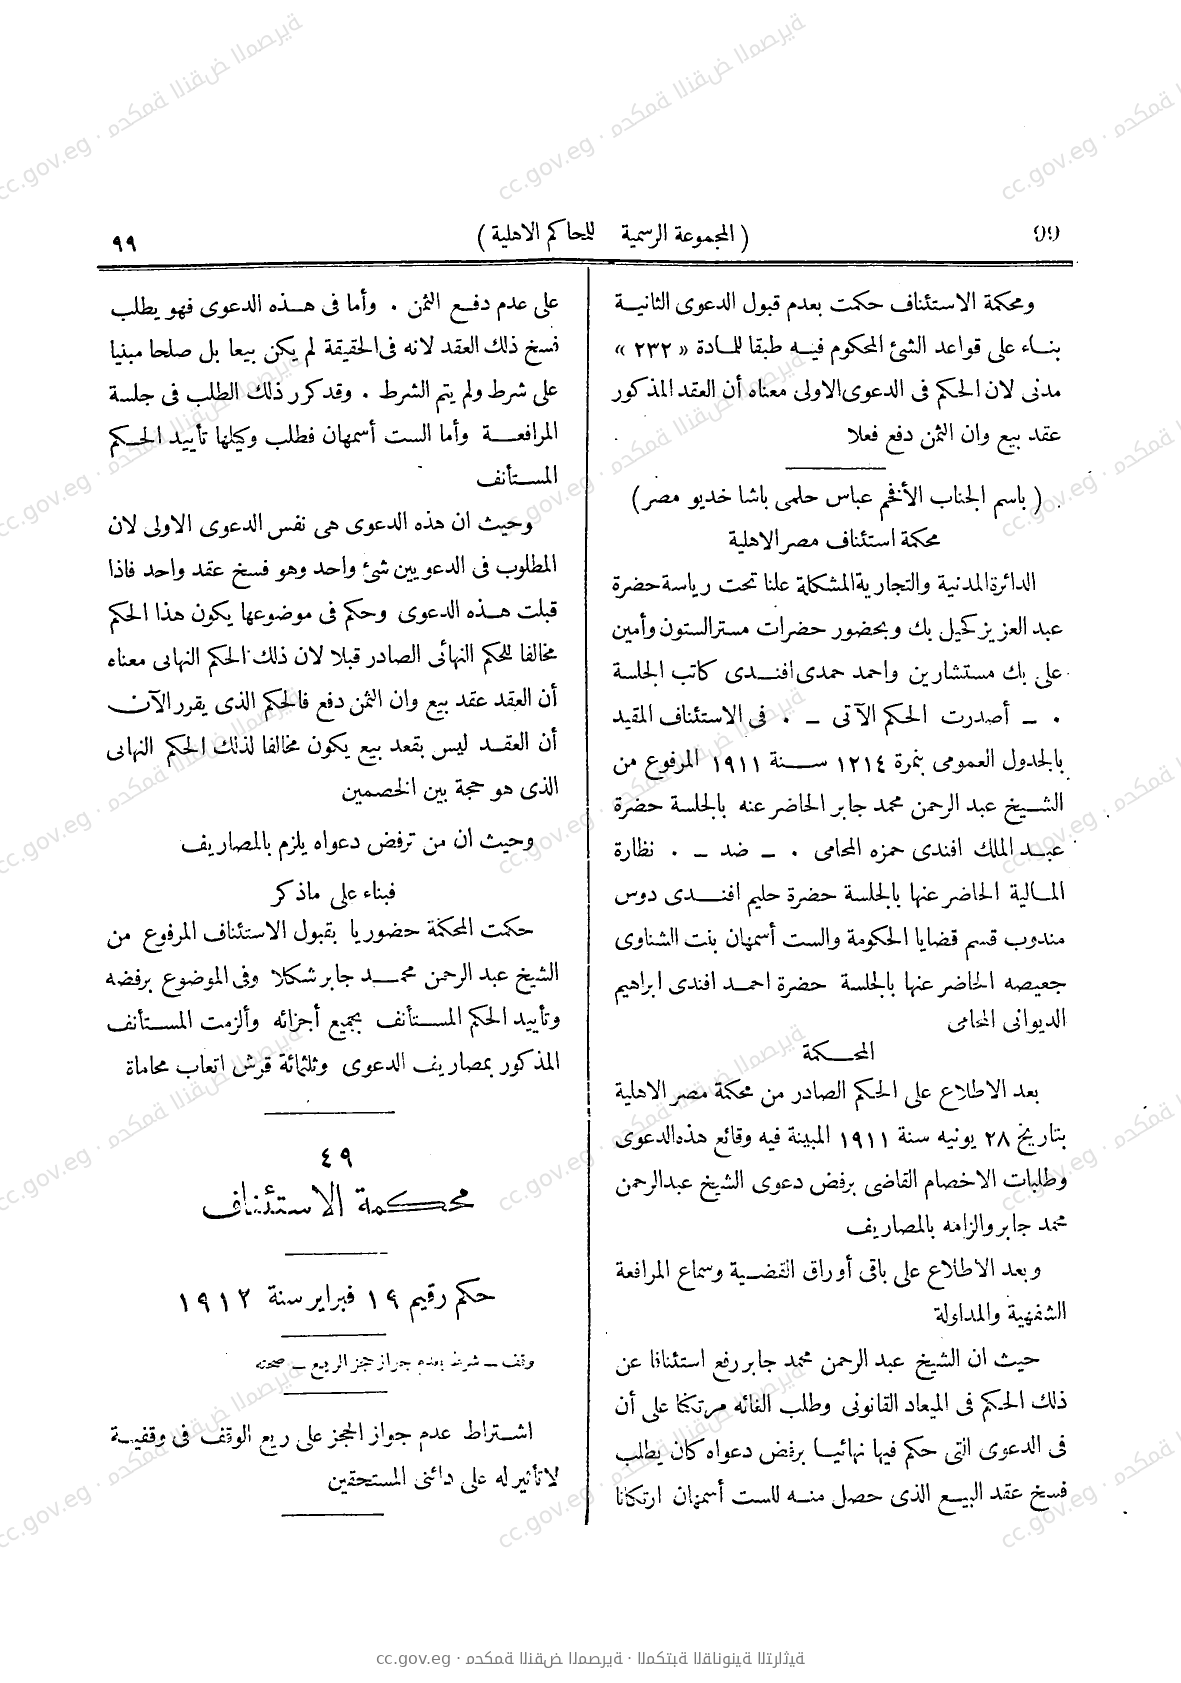 99
( المجموعة الرسمية للمحاكم الاهلية )
٩٩
ومحكمة الاستئناف حكمت بعدم قبول الدعوى الثانيــة
بنــاء على قواعد الشئ المحكوم فيــه طبقا للــادة « ٢٣٢ »
مدنى لان الحكم فى الدعوى الاولى معناه أن العقد المذكور
عقد بيع وان الثمن دفع فعلا
( باسم الجناب الأفخم عباس حلمى باشا خديو مصر )
محكمة استئناف مصر الاهلية
الدائرة المدنية والتجارية المشكلة علنا تحت رياسة حضرة
عبد العزيز كحيل بك وبحضور حضرات مستر الستون وأمين
على بك مستشارين واحمد حمدى افنــدى كاتب الجلسة
٠ ــ أصدرت الحكم الآتى ــ ٠ فى الاستئناف المقيد
بالجدول العمومى بنمرة ١٢١٤ ســنة ١٩١١ المرفوع من
الشــيخ عبد الرحمن محمد جابر الحاضر عنه بالجلسة حضرة
عبــد الملك افندى حمزه المحامى ٠ ــ ضد ــ ٠ نظارة
المــالية الحاضر عنها بالجلسة حضرة حليم افنــدى دوس
مندوب قسم قضايا الحكومة والست أسمهان بنت الشناوى
جعيصه الحاضر عنها بالجلسة حضرة احمــد افندى ابراهيم
الديوانى المحامى
المحــكمة
بعد الاطلاع على الحكم الصادر من محكمة مصر الاهلية
بتاريخ ٢٨ يونيه سنة ١٩١١ المبينة فيه وقائع هذه الدعوى
وطلبات الاخصام القاضى برفض دعوى الشيخ عبد الرحمن
محمد جابر والزامه بالمصاريف
وبعد الاطلاع على باقى أوراق القضــية وسماع المرافعة
الشفهية والمداولة
حيث ان الشيخ عبد الرحمن محمد جابر رفع استئنافا عن
ذلك الحكم فى الميعاد القانونى وطلب الغائه مرتكنا على أن
فى الدعوى التى حكم فيها نهائيــا برفض دعواه كان يطلب
فسخ عقد البيــع الذى حصل منــه للست أسمهان ارتكانا
على عدم دفــع الثمن ٠ وأما فى هــذه الدعوى فهو يطلب
فسخ ذلك العقد لانه فى الحقيقة لم يكن بيعا بل صلحا مبنيا
على شرط ولم يتم الشرط ٠ وقد كرر ذلك الطلب فى جلسة
المرافعــة وأما الست أسمهان فطلب وكيلها تأييد الحــكم
المســتأنف
وحيث ان هذه الدعوى هى نفس الدعوى الاولى لان
المطلوب فى الدعويين شئ واحد وهو فسخ عقد واحد فاذا
قبلت هــذه الدعوى وحكم فى موضوعها يكون هذا الحكم
مخالفا للحكم النهائى الصادر قبلا لان ذلك الحكم النهائى معناه
أن العقد عقد بيع وان الثمن دفع فالحكم الذى يقرر الآن
أن العقــد ليس بقعد بيع يكون مخالفا لذلك الحكم النهائى
الذى هو حجة بين الخصمين
وحيث ان من ترفض دعواه يلزم بالمصاريف
فبناء على ماذكر
حكمت المحكمة حضوريا بقبول الاستئناف المرفوع من
الشيخ عبد الرحمن محمــد جابر شكلا وفى الموضوع برفضه
وتأييد الحكم المســتأنف بجميع أجزائه وألزمت المســتأنف
المذكور بمصاريف الدعوى وثلثمائة قرش اتعاب محاماة
٤٩
محكمة الاستئناف
حكم رقيم ١٩ فبراير سنة ١٩١٢
وقف ــ شرط بعدم جواز حجز الريع ــ صحته
اشــتراط عدم جواز الحجز على ريع الوقف فى وقفيــة
لا تأثير له على دائنى المستحقين
cc.gov.eg · محكمة النقض المصرية · المكتبة القانونية التراثية